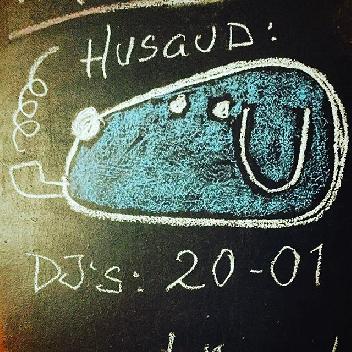 HUSAUD:
DJ's: 20-01